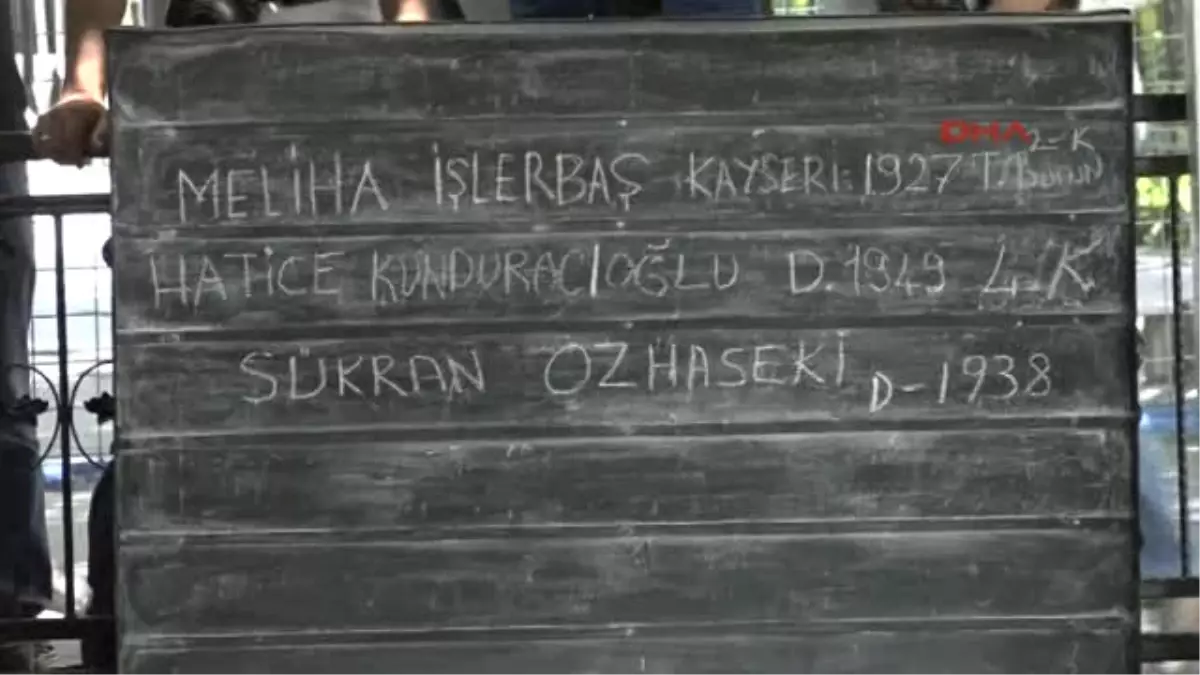 DHA
2-K
MELİHA İŞLERBAŞ KAYSERİ: 1927 T. Burun
HATİCE KUNDURACIOĞLU D. 1949 4. K
SÜKRAN ÖZHASEKİ D-1938